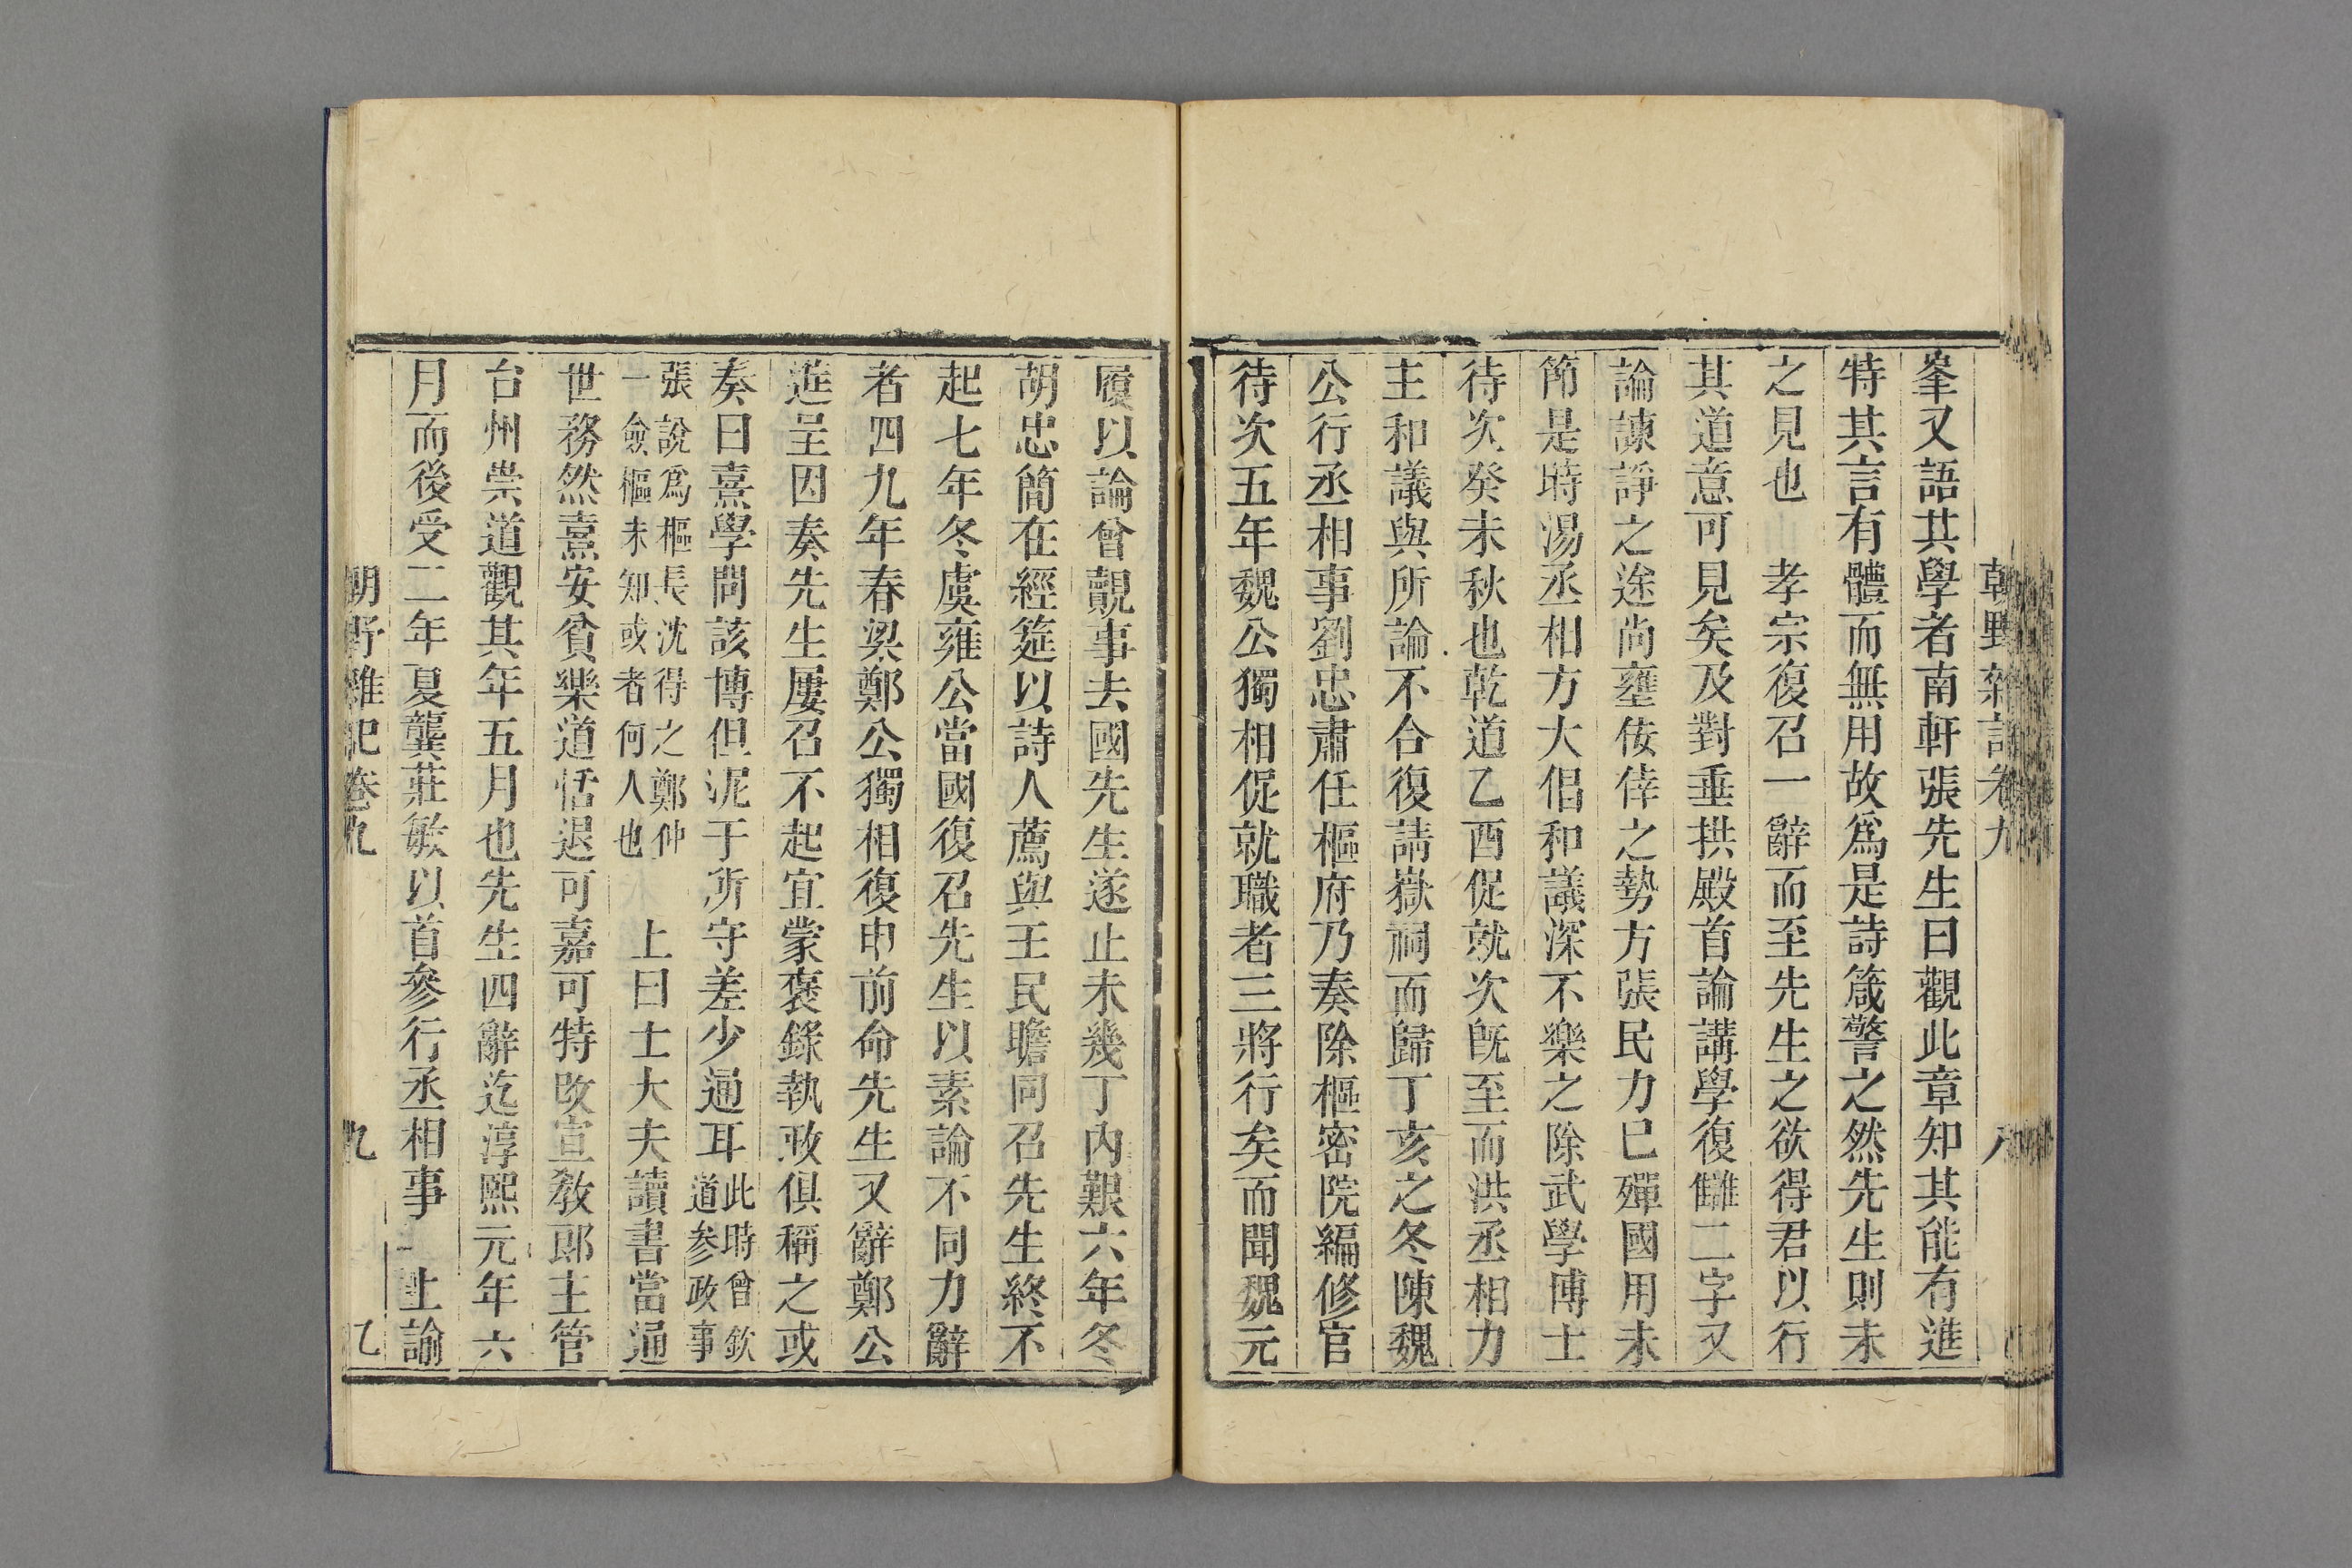 朝野雜記卷九 八
峯又語其學者南軒張先生曰觀此章知其能有進
特其言有體而無用故爲是詩箴警之然先生則未
之見也 孝宗復召一辭而至先生之欲得君以行
其道意可見矣及對垂拱殿首論講學復讎二字又
論諫諍之途尚壅佞倖之勢方張民力已殫國用未
節是時湯丞相方大倡和議深不樂之除武學博士
待次癸未秋也乾道乙酉促就次旣至而洪丞相力
主和議與所論不合復請嶽祠而歸丁亥之冬陳魏
公行丞相事劉忠肅任樞府乃奏除樞密院編修官
待次五年魏公獨相促就職者三將行矣而聞魏元
履以論曾覿事去國先生遂止未幾丁內艱六年冬
胡忠簡在經筵以詩人薦與王民瞻同召先生終不
起七年冬虞雍公當國復召先生以素論不同力辭
者四九年春梁鄭公獨相復申前命先生又辭鄭公
進呈因奏先生屢召不起宜蒙褒錄執政俱稱之或
奏曰熹學問該博但泥于所守差少通耳此時曾欽道參政事
張說爲樞長沈得之鄭仲一僉樞未知或者何人也 上曰士大夫讀書當通
世務然熹安貧樂道恬退可嘉可特改宣教郎主管
台州崇道觀其年五月也先生四辭迄淳熙元年六
月而後受二年夏龔莊敏以首參行丞相事 上諭
朝野雜記卷九 九 乙